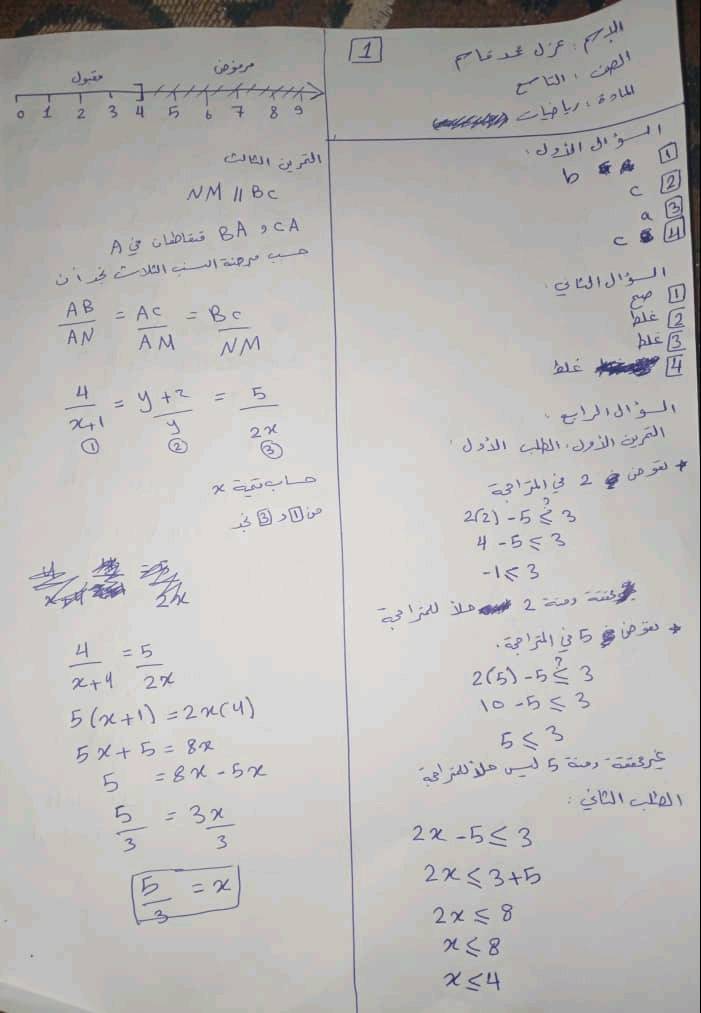 1
الاسم : غزل محمد قاسم
الصف : التاسع
المادة : رياضيات
السؤال الأول :
1 b
2 c
3 a
4 c
السؤال الثاني :
1 صح
2 غلط
3 غلط
4 غلط
السؤال الرابع :
التمرين الأول : الطلب الأول :
* نعوض 2 في المتراجحة
2(2) -5 ≤? 3
4 -5 ≤ 3
-1 ≤ 3
محققة ومنه 2 حلاً للمتراجحة
* نعوض 5 في المتراجحة .
2(5) -5 ≤? 3
10 -5 ≤ 3
5 ≤ 3
غير محققة ومنه 5 ليس حلاً للمتراجحة
الطلب الثاني :
2x -5 ≤ 3
2x ≤ 3+5
2x ≤ 8
x ≤ 8
x ≤ 4
مقبول مرفوض
0 1 2 3 4 5 6 7 8 9
التمرين الثالث
NM // BC
CA و BA متقاطعان في A
حسب مبرهنة النسب الثلاث نجد أن
AB/AN = AC/AM = BC/NM
4/x+1 = y+2/y = 5/2x
1 2 3
حساب قيمة x
من 1 و 3 نجد
4/x+4 = 5/2x
5(x+1) = 2x(4)
5x+5 = 8x
5 = 8x - 5x
5/3 = 3x/3
5/3 = x